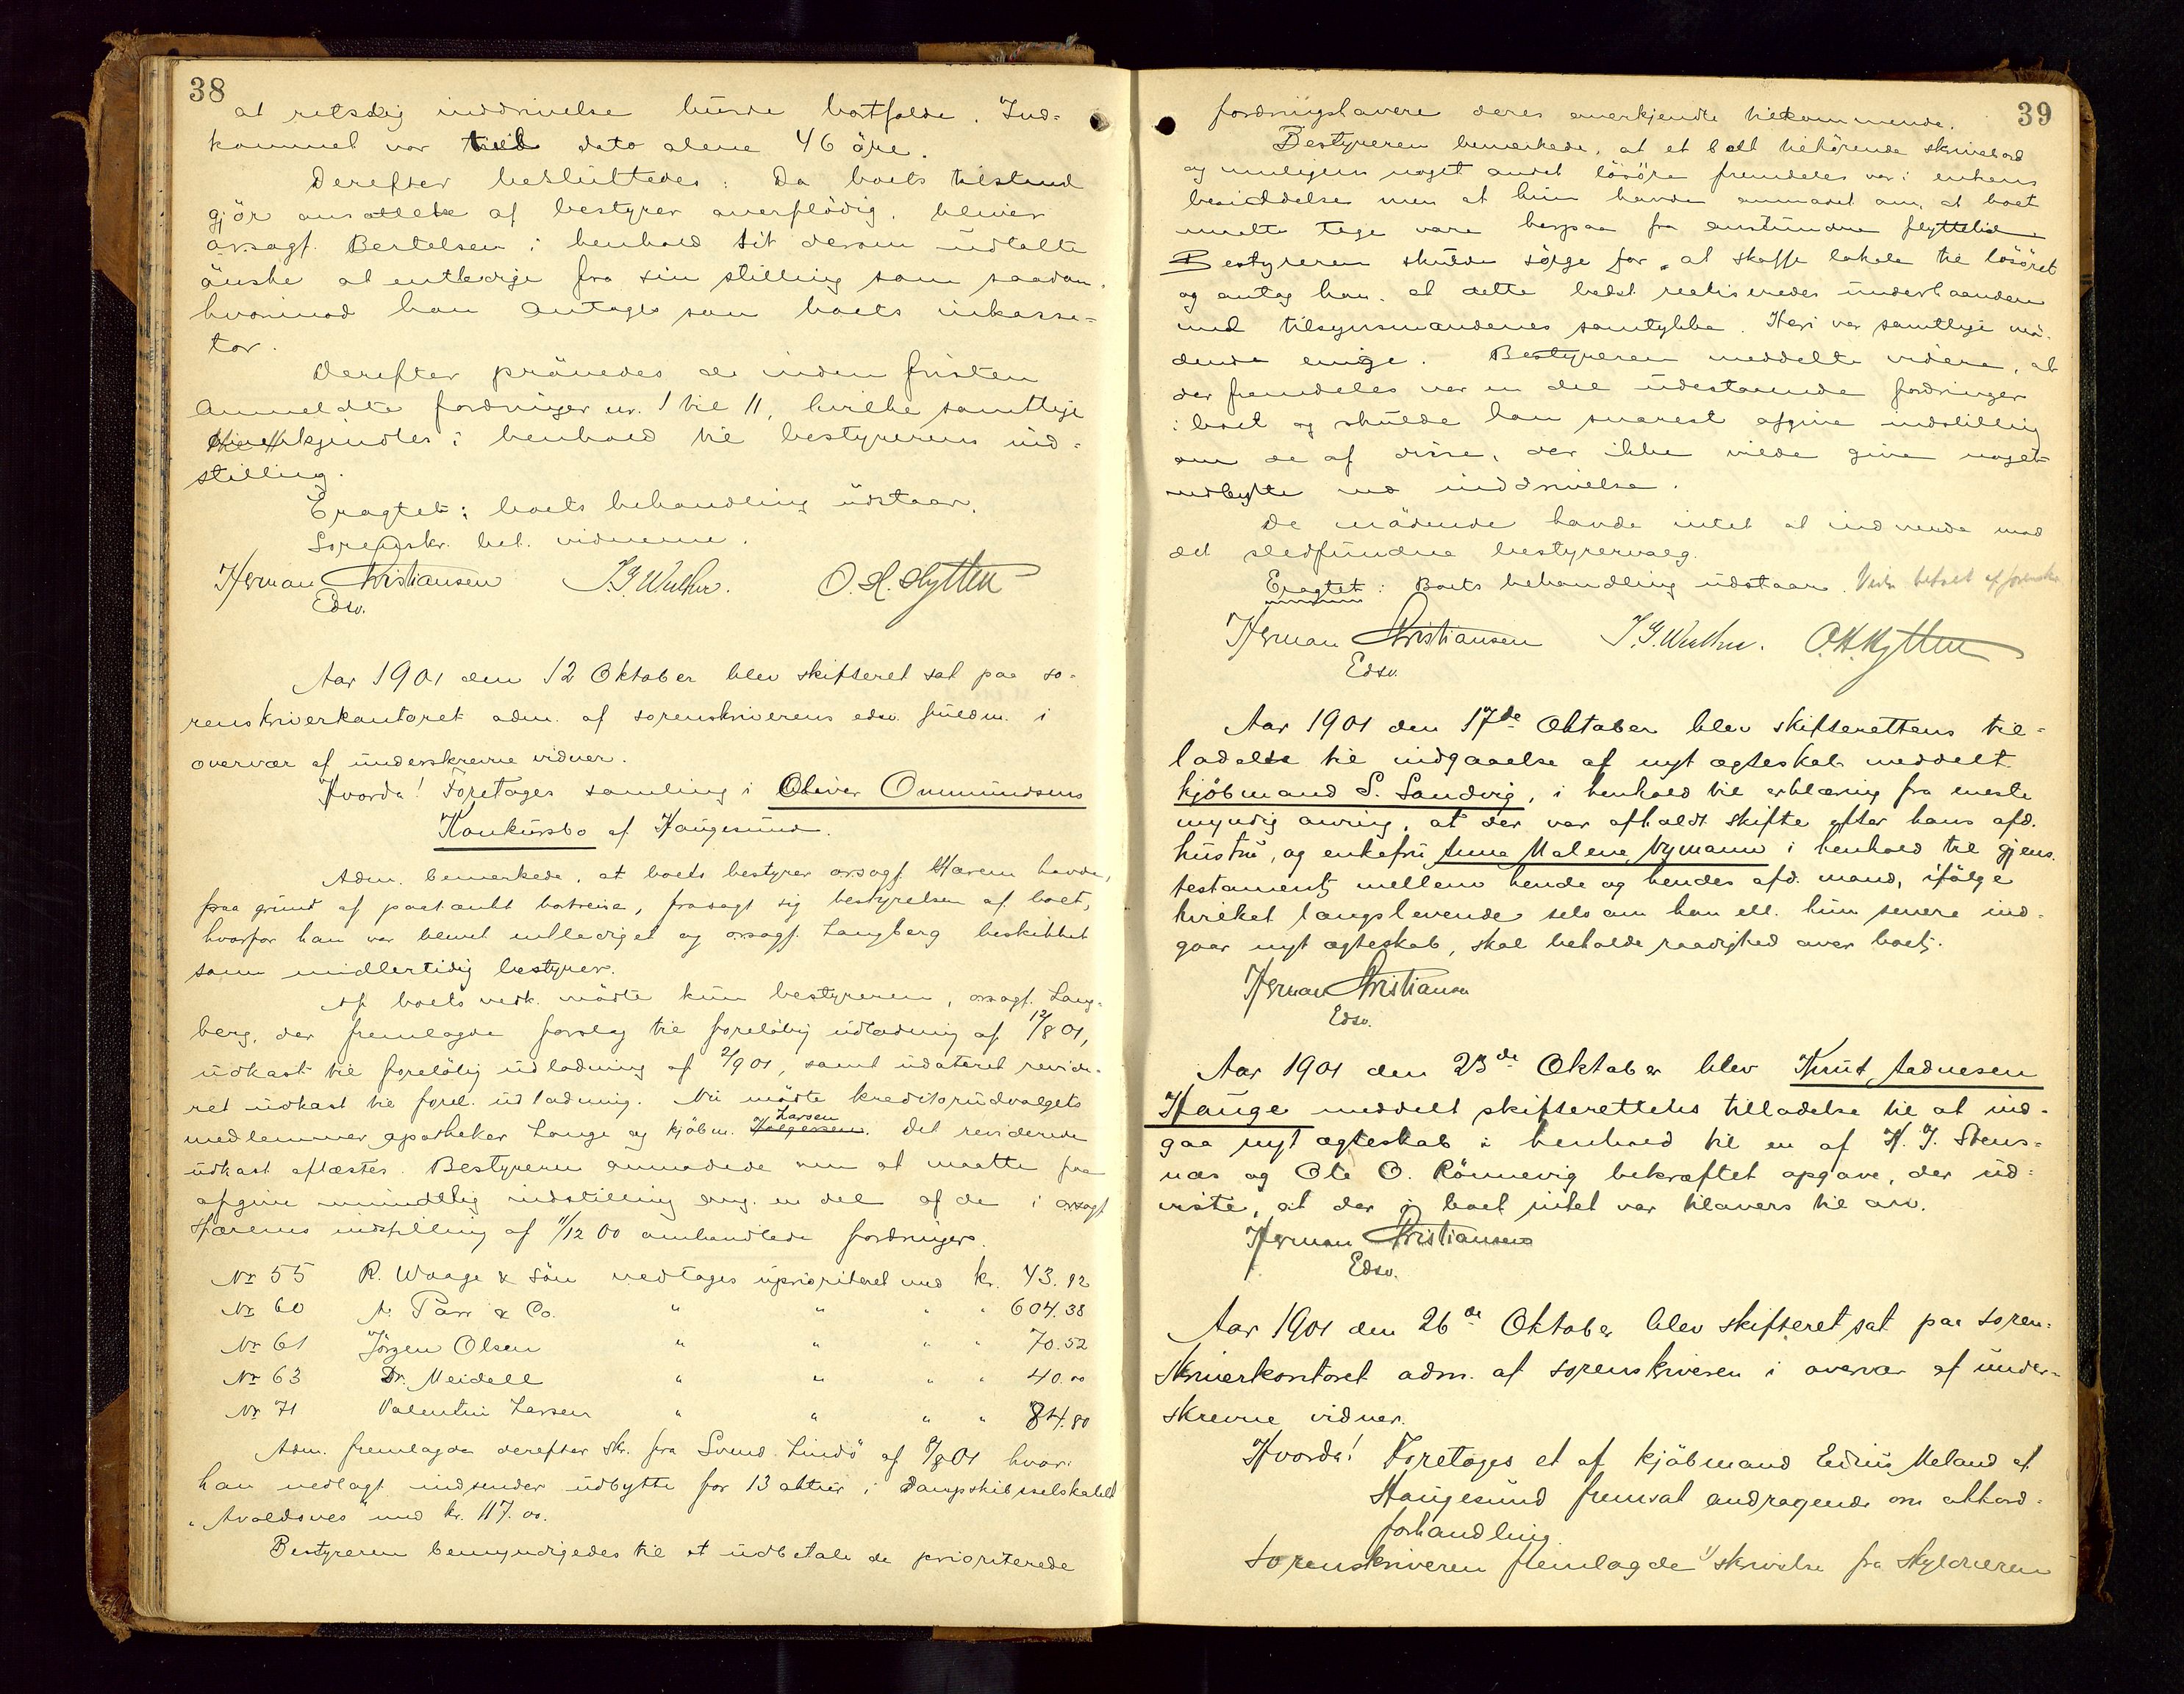 38
at retslig inddrivelse burde bortfalde. Ind-
kommet var til dato alene 46 öre.
Derefter besluttedes: Da boets tilstand
gjör ansættelse af bestyrer overflödig, bliver
orsagf. Bertelsen i henhold til derom udtalte
önske at entledige fra sin stilling som saadan,
hvorimod han antages som boets inkasse-
tor.
Derefter prövedes de inden fristen
anmeldte fordringer nr. 1 til 11, hvilke samtlige
kjendtes i henhold til bestyrerens ind-
stilling.
Eragtet: boets behandling udstaar.
Sorenskr. bet. vidnerne.
Herman Kristiansen J. G. Wulher. O. H. Hytten
Edsv.
Aar 1901 den 12 Oktober blev skifteret sat paa so-
renskriverkontoret adm. af sorenskriverens edsv. fuldm. i
overvær af underskrevne vidner.
Hvorda! Foretages samling i Oliver Ommundsens
Konkursbo af Haugesund.
Adm. bemerkede, at boets bestyrer orsagf. Harem havde,
paa grund af paatænkt bortreise, frasagt sig bestyrelsen af boet,
hvorfor han var blevet entlediget og orsagf. Langberg beskikket
som midlertidig bestyrer.
Af boets vedk. mödte kun bestyreren, orsagf. Lang-
berg, der fremlagde forslag til forelöbig udlodning af 12/8 01,
udkast til forelöbig udlodning af 2/9 01, samt udateret revide-
ret udkast til forel. udlodning. Nu mödte kreditorudvalgets
medlemmer apotheker Lange og kjöbm. Larsen. Det reviderede
udkast oplæstes. Bestyreren anmodede om at maatte faa
afgive mundtlig indstilling ang. en del af de i orsagf.
Harems indstilling af 11/12 00 omhandlede fordringer.
Nr 55 R. Waage & Sön vedtages uprioriteret med kr. 43.92
Nr 60 A. Parr & Co. " " " " 604.38
Nr 61 Jörgen Olsen " " " " 70.52
Nr 63 Dr. Meidell " " " " 40.00
Nr 71 Valentin Larsen " " " " 84.80
Adm. fremlagde derefter skr. fra Svend Lindö af 9/8 01 hvori
han vedlagt indsender udbytte for 13 aktier i Dampskibsselskabet
"Avaldsnes" med kr. 117.00.
Bestyreren bemyndigedes til at udbetale de prioriterede
39
fordringshavere deres anerkjendte tilkommende.
Bestyreren bemerkede, at et boet tilhörende skrivebord
og muligens noget andet lösöre fremdeles var i enkens
besiddelse men at hun havde anmodet om, at boet
maatte tage vare herpaa fra anstundne flyttetid.
Bestyreren skulde sörge for at skaffe lokale til lösöret
og antog han, at dette bedst realiseredes underhaanden
med tilsynsmandenes samtykke. Heri var samtlige mö-
dende enige. Bestyreren meddelte videre, at
der fremdeles var en del udestaaende fordringer
i boet og skulde han snarest afgive indstilling
om de af disse, der ikke vilde give noget
udbytte ved inddrivelse.
De mödende havde intet at indvende mod
det stedfundne bestyrervalg.
Eragtet: Boets behandling udstaar. Vidn. betalt af sorenskr.
Herman Kristiansen J. G. Wulher. O. H. Hytten
Edsv.
Aar 1901 den 17de Oktober blev skifterettens til-
ladelse til indgaaelse af nyt ægteskab meddelt
kjöbmand S. Sandvig, i henhold til erklæring fra eneste
myndig arving, at der var afholdt skifte efter hans afd.
hustru, og enkefru Anna Malene Nymann i henhold til gjens.
testament mellem hende og hendes afd. mand, ifölge
hvilket længstlevende selv om han ell. hun senere ind-
gaar nyt ægteskab, skal beholde raadighed over boet.
Herman Kristiansen
Edsv.
Aar 1901 den 23de Oktober blev Knut Aadnesen
Hauge meddelt skifterettens tilladelse til at ind-
gaa nyt ægteskab i henhold til en af H. J. Stens-
næs og Ole O. Rönnevig bekræftet opgave, der ud-
viste, at der i boet intet var tilovers til arv.
Herman Kristiansen
Edsv.
Aar 1901 den 26de Oktober blev skifteret sat paa soren-
skriverkontoret adm. af sorenskriveren i overvær af under-
skrevne vidner.
Hvorda! Foretoges et af kjöbmand Meland af
Haugesund fremsat andragende om akkord-
forhandling
Sorenskriveren fremlagde 1) skrivelse fra Skyldneren